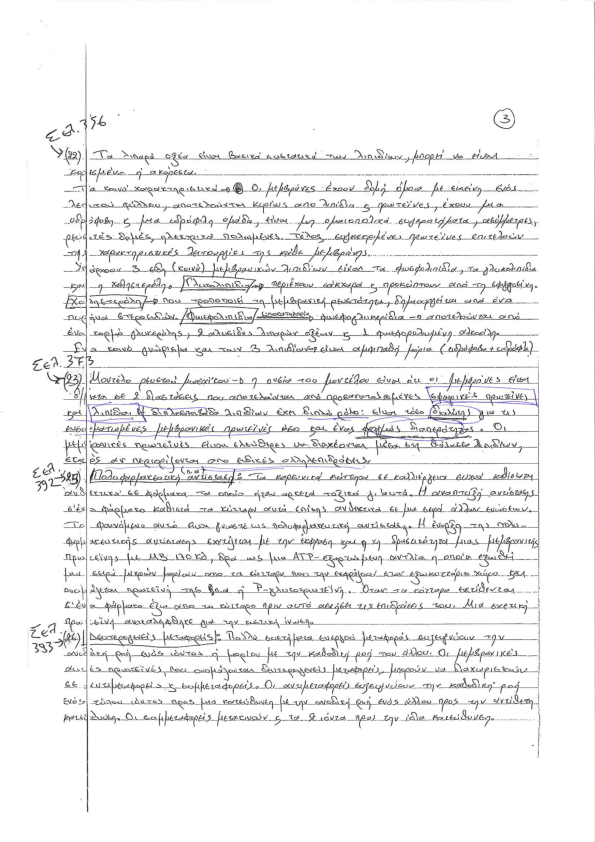 3
Σελ. 356
(22) Τα λιπαρά οξέα είναι βασικά συστατικά των λιπιδίων, μπορεί να είναι
κορεσμένα ή ακόρεστα.
Τα κοινά χαρακτηριστικά → Οι μεμβράνες έχουν δομή όμοια με εκείνη ενός
λεπτού φύλλου, αποτελούνται κυρίως από λιπίδια ς πρωτεΐνες, έχουν μια
υδρόφοβη ς μια υδρόφιλη ομάδα, είναι μη ομοιοπολικά συγκροτήματα, ασύμμετρες,
ρευστές δομές, ηλεκτρικά πολωμένες. Τέλος, συγκεκριμένες πρωτεΐνες επιτελούν
τις χαρακτηριστικές λειτουργίες της κάθε μεμβράνης.
Υπάρχουν 3 είδη (κοινά) μεμβρανικών λιπιδίων είναι τα φωσφολιπίδια, τα γλυκολιπίδια
και η χοληστερόλη. Γλυκολιπίδια → περιέχουν σάκχαρα ς προκύπτουν από τη σφιγγοσίνη.
Χοληστερόλη → που τροποποιεί τη μεμβρανική ρευστότητα, δημιουργείται από ένα
πυρήνα στεροειδών. Φωσφολιπίδια φωσφογλυκερίδια → αποτελούνται από
ένα κορμό γλυκερόλης, 2 αλυσίδες λιπαρών οξέων ς 1 φωσφορυλιωμένη αλκοόλη.
Ένα κοινό γνώρισμα και των 3 λιπιδίων είναι αμφιπαθή μόρια (υδρόφοβα + υδρόφιλα)
Σελ. 373
(23) Μοντέλο ρευστού μωσαϊκού → η ουσία του μοντέλου είναι ότι οι μεμβράνες είναι
διαλύματα σε 2 διαστάσεις που αποτελούνται από προσανατολισμένες σφαιρικές πρωτεΐνες
και λιπίδια. Η διπλοστιβάδα λιπιδίων έχει διπλό ρόλο: είναι τόσο διαλύτης για τις
ενσωματωμένες μεμβρανικές πρωτεΐνες όσο και ένας φραγμός διαπερατότητας. Οι
μεμβρανικές πρωτεΐνες είναι ελεύθερες να διαχέονται μέσα στη λιπιδίων,
εκτός αν περιορίζονται από ειδικές αλληλεπιδράσεις.
Σελ. 392
(25) Πολυφαρμακευτική αντίσταση: Τα καρκινικά κύτταρα σε καλλιέργεια συχνά καθίστανται
ανθεκτικά σε φάρμακα τα οποία ήταν αρκετά τοξικά γι'αυτά. Η ανάπτυξη αντίστασης
σ'ένα φάρμακο καθιστά τα κύτταρα αυτά επίσης ανθεκτικά σε μια σειρά άλλων ενώσεων.
Το φαινόμενο αυτό είναι γνωστό ως πολυφαρμακευτική αντίσταση. Η έναρξη της πολυ-
φαρμακευτικής αντίστασης σχετίζεται με την έκφραση και τη δραστικότητα μιας μεμβρανικής
πρωτεΐνης με ΜΒ 170 Kd, δρα ως μια ATP-εξαρτώμενη αντλία η οποία εξωθεί
μια σειρά μικρών μορίων από τα κύτταρα που την εκφράζουν στον εξωκυττάριο χώρο και
ονομάζεται πρωτεΐνη της ή P-γλυκοπρωτεΐνη. Όταν τα κύτταρα εκτίθενται
σ'ένα φάρμακο έξω από το κύτταρο πριν αυτό ασκήσει τις επιδράσεις του. Μια σχετική
πρωτεΐνη ανακαλύφθηκε για την κυστική ίνωση.
Σελ. 393
(26) Δευτερογενείς μεταφορείς: Πολλά συστήματα ενεργού μεταφοράς συζευγνύουν την
ανοδική ροή ενός ιόντος ή μορίου με την καθοδική ροή του άλλου. Οι μεμβρανικές
αυτές πρωτεΐνες, που ονομάζονται δευτερογενείς μεταφορείς, μπορούν να διαχωριστούν
σε αντιμεταφορείς ς συμμεταφορείς. Οι αντιμεταφορείς συζευγνύουν την καθοδική ροή
ενός τύπου ιόντος προς μια κατεύθυνση με την ανοδική ροή ενός άλλου προς την αντίθετη
κατεύθυνση. Οι συμμεταφορείς μετακινούν ς τα 2 ιόντα προς την ίδια κατεύθυνση.